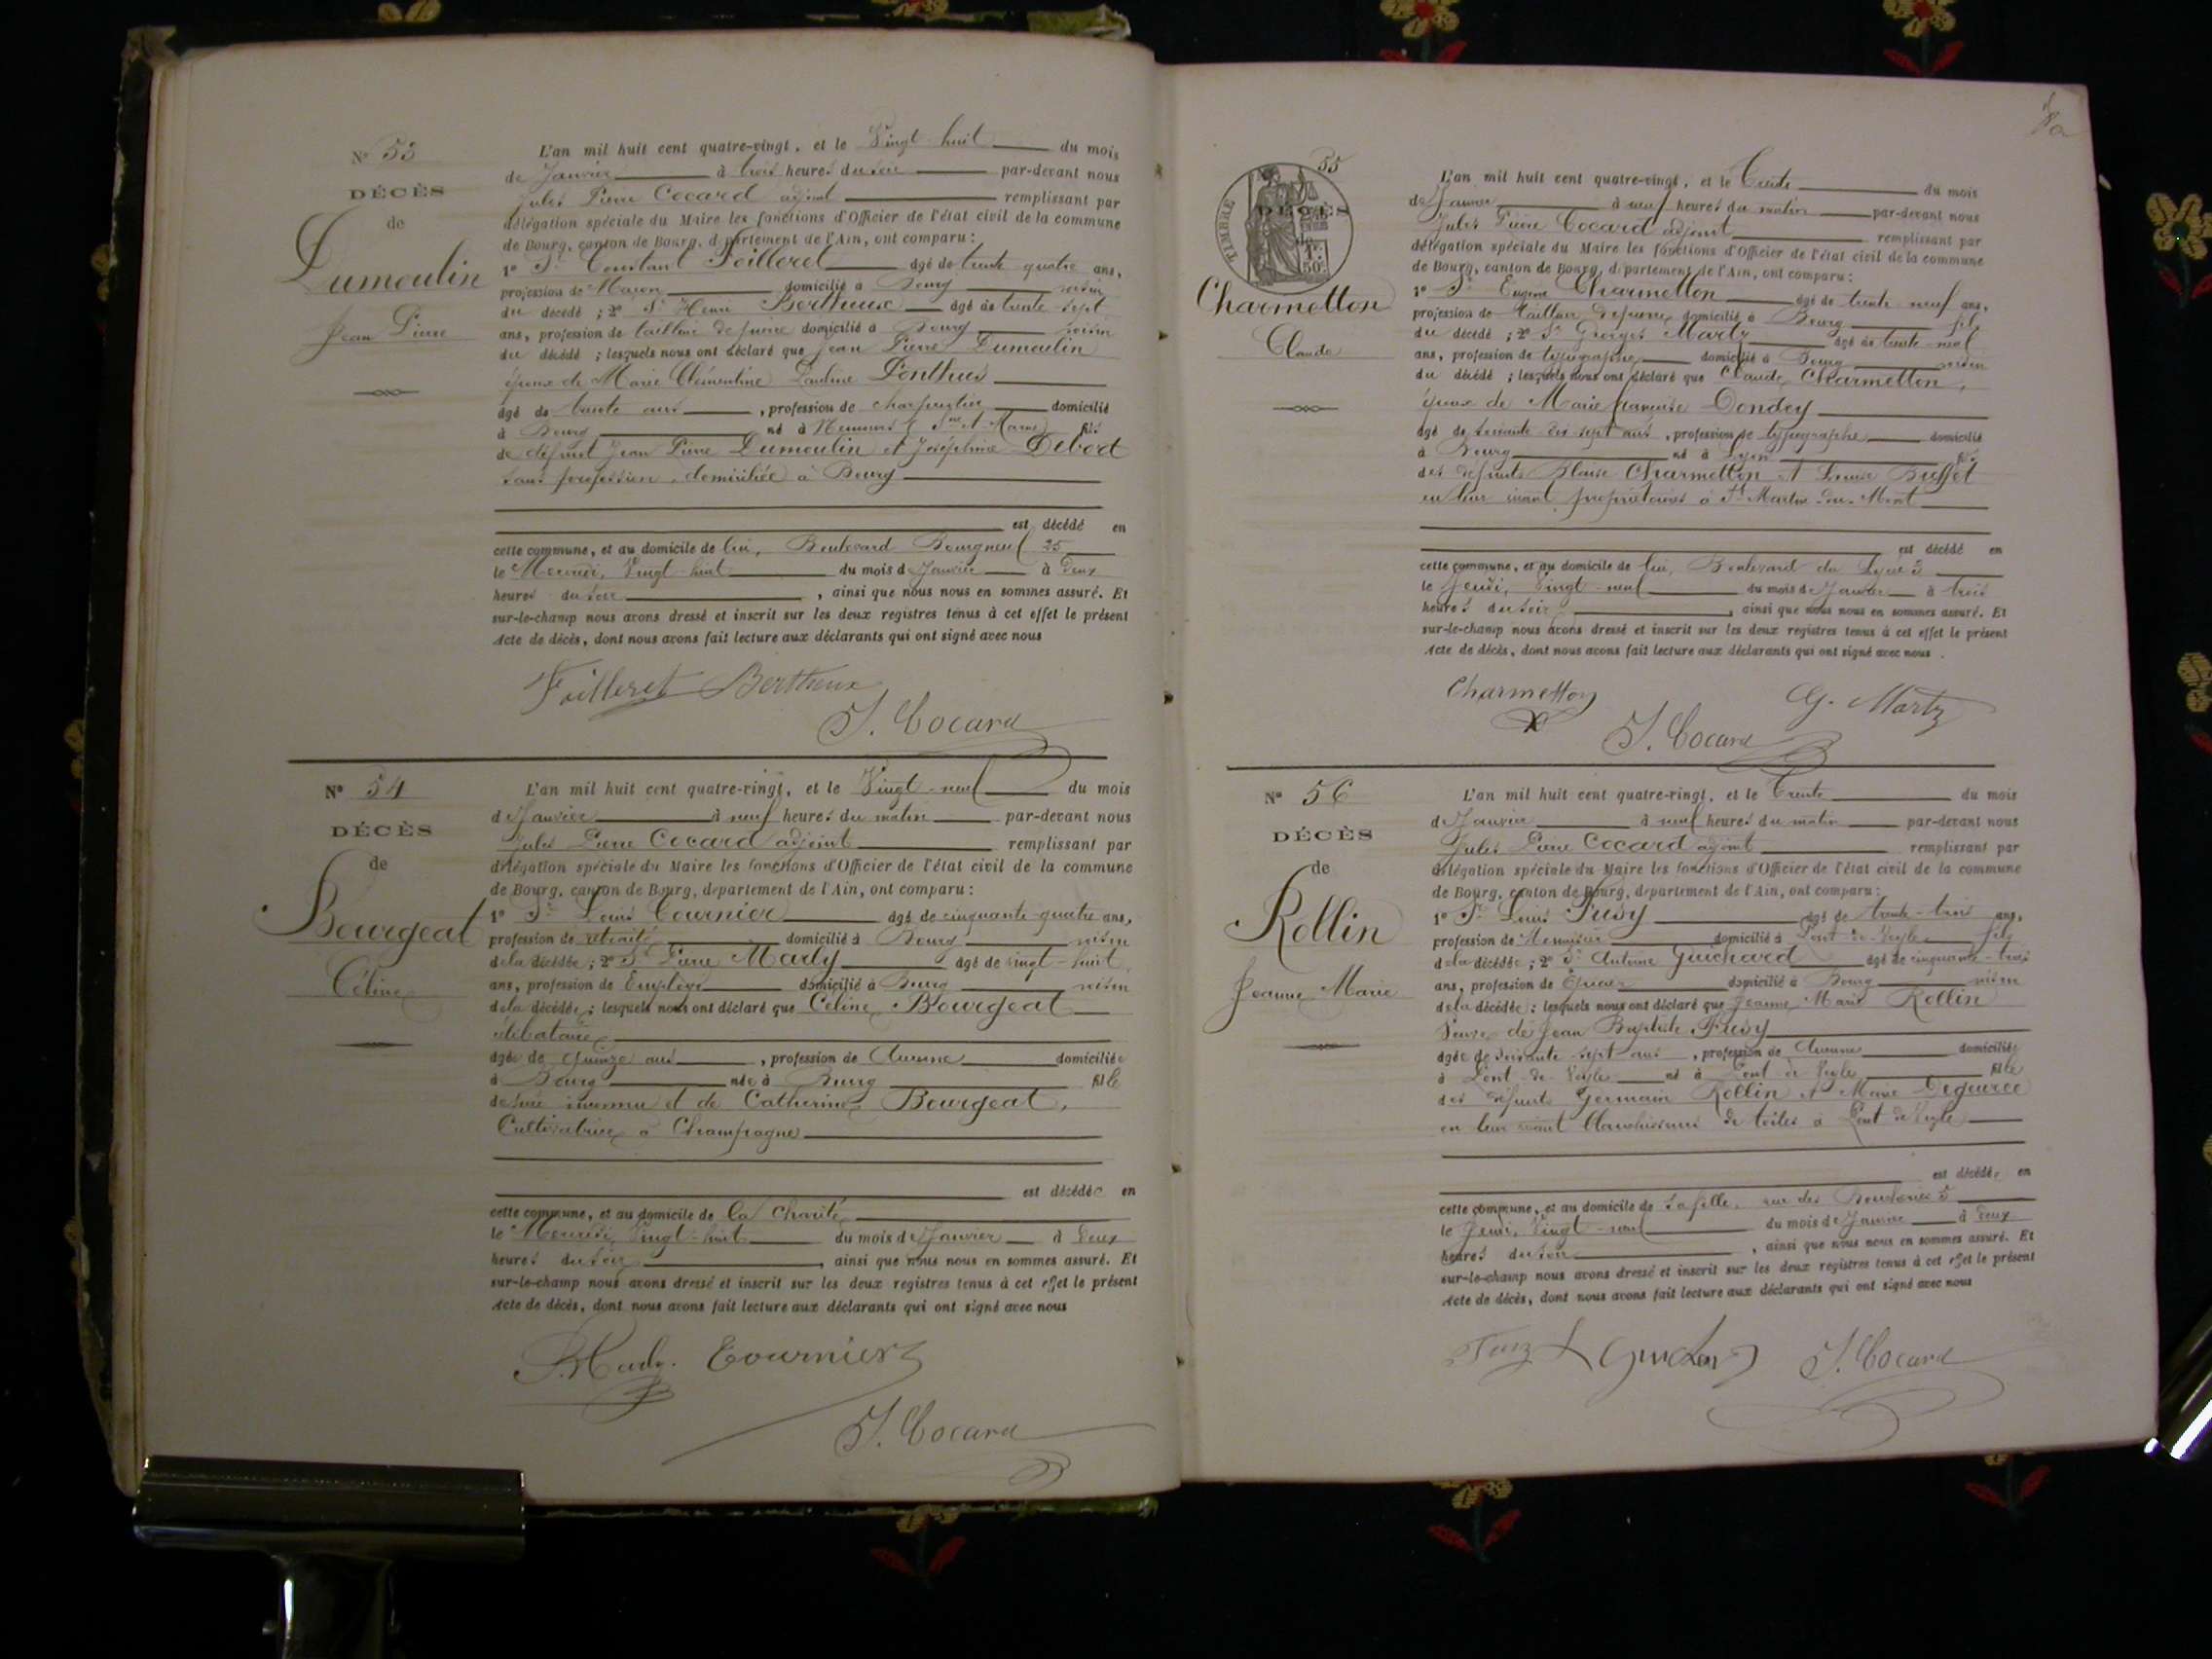 N° 53
DÉCÈS
de
Dumoulin
Jean Pierre
L'an mil huit cent quatre-vingt, et le Vingt-huit du mois
de Janvier à trois heures du soir par-devant nous
Jules Pierre Cocard adjoint remplissant par
délégation spéciale du Maire les fonctions d'Officier de l'état civil de la commune
de Bourg, canton de Bourg, département de l'Ain, ont comparu :
1° Sr Constant Feilleret âgé de trente quatre ans,
profession de Maçon domicilié à Bourg voisin
du décédé ; 2° Sr Henri Bertheux âgé de trente-sept
ans, profession de tailleur de pierre domicilié à Bourg voisin
du décédé ; lesquels nous ont déclaré que Jean Pierre Dumoulin
époux de Marie Clémentine Pauline Ponthus
âgé de trente ans, profession de charpentier domicilié
à Bourg né à Nemours (Sne et Marne) fils
de défunt Jean Pierre Dumoulin et Joséphine Debord
sans profession, domiciliée à Bourg
est décédé en
cette commune, et au domicile de lui, Boulevard Bourgneuf 25
le Mercredi, Vingt-huit du mois de Janvier à Deux
heures du soir, ainsi que nous nous en sommes assuré. Et
sur-le-champ nous avons dressé et inscrit sur les deux registres tenus à cet effet le présent
Acte de décès, dont nous avons fait lecture aux déclarants qui ont signé avec nous
Feilleret Bertheux
J. Cocard
N° 54
DÉCÈS
de
Bourgeat
Céline
L'an mil huit cent quatre-vingt, et le Vingt-neuf du mois
de Janvier à neuf heures du matin par-devant nous
Jules Pierre Cocard adjoint remplissant par
délégation spéciale du Maire les fonctions d'Officier de l'état civil de la commune
de Bourg, canton de Bourg, département de l'Ain, ont comparu :
1° Sr Louis Tournier âgé de cinquante-quatre ans,
profession de retraité domicilié à Bourg voisin
de la décédée ; 2° Sr Pierre Marly âgé de vingt-huit
ans, profession de Employé domicilié à Bourg voisin
de la décédée ; lesquels nous ont déclaré que Céline Bourgeat
célibataire
âgée de quinze ans, profession de Aucune domiciliée
à Bourg née à Bourg fille
de père inconnu et de Catherine Bourgeat,
Cultivatrice à Champagne
est décédée en
cette commune, et au domicile de la Charité
le Mercredi, Vingt-huit du mois de Janvier à Deux
heures du soir, ainsi que nous nous en sommes assuré. Et
sur-le-champ nous avons dressé et inscrit sur les deux registres tenus à cet effet le présent
Acte de décès, dont nous avons fait lecture aux déclarants qui ont signé avec nous
P. Marly. Tournier
J. Cocard
55
TIMBRE
DÉCÈS
de
1F.
50c
Charmetton
Claude
L'an mil huit cent quatre-vingt, et le Trente du mois
de Janvier à neuf heures du matin par-devant nous
Jules Pierre Cocard adjoint remplissant par
délégation spéciale du Maire les fonctions d'Officier de l'état civil de la commune
de Bourg, canton de Bourg, département de l'Ain, ont comparu :
1° Sr Eugène Charmetton âgé de trente neuf ans,
profession de tailleur de pierre domicilié à Bourg fils
du décédé ; 2° Sr Georges Martz âgé de trente-neuf
ans, profession de typographe domicilié à Bourg voisin
du décédé ; lesquels nous ont déclaré que Claude Charmetton,
époux de Marie Françoise Dondey
âgé de soixante dix sept ans, profession de typographe domicilié
à Bourg né à Lyon fils
des défunts Blaise Charmetton et Louise Buffet
en leur vivant propriétaires à St Martin-du-Mont
est décédé en
cette commune, et au domicile de lui, Boulevard du Lycée 3
le Jeudi, Vingt-neuf du mois de Janvier à trois
heures du soir, ainsi que nous nous en sommes assuré. Et
sur-le-champ nous avons dressé et inscrit sur les deux registres tenus à cet effet le présent
Acte de décès, dont nous avons fait lecture aux déclarants qui ont signé avec nous.
Charmetton G. Martz
J. Cocard
N° 56
DÉCÈS
de
Rollin
Jeanne Marie
L'an mil huit cent quatre-vingt, et le Trente du mois
de Janvier à neuf heures du matin par-devant nous
Jules Pierre Cocard adjoint remplissant par
délégation spéciale du Maire les fonctions d'Officier de l'état civil de la commune
de Bourg, canton de Bourg, département de l'Ain, ont comparu :
1° Sr Louis Fusy âgé de trente-trois ans,
profession de Menuisier domicilié à Pont-de-Veyle fils
de la décédée ; 2° Sr Antoine Guichard âgé de cinquante-trois
ans, profession de Épicier domicilié à Bourg voisin
de la décédée ; lesquels nous ont déclaré que Jeanne Marie Rollin
Veuve de Jean Baptiste Fusy
âgée de soixante sept ans, profession de Aucune domiciliée
à Pont-de-Veyle né à Pont de Veyle fille
des défunts Germain Rollin et Marie
en leur vivant blanchisseurs de toiles à Pont de Veyle
est décédée en
cette commune, et au domicile de sa fille, rue des 5
le Jeudi, Vingt-neuf du mois de Janvier à Deux
heures du soir, ainsi que nous nous en sommes assuré. Et
sur-le-champ nous avons dressé et inscrit sur les deux registres tenus à cet effet le présent
Acte de décès, dont nous avons fait lecture aux déclarants qui ont signé avec nous
Guichard J. Cocard